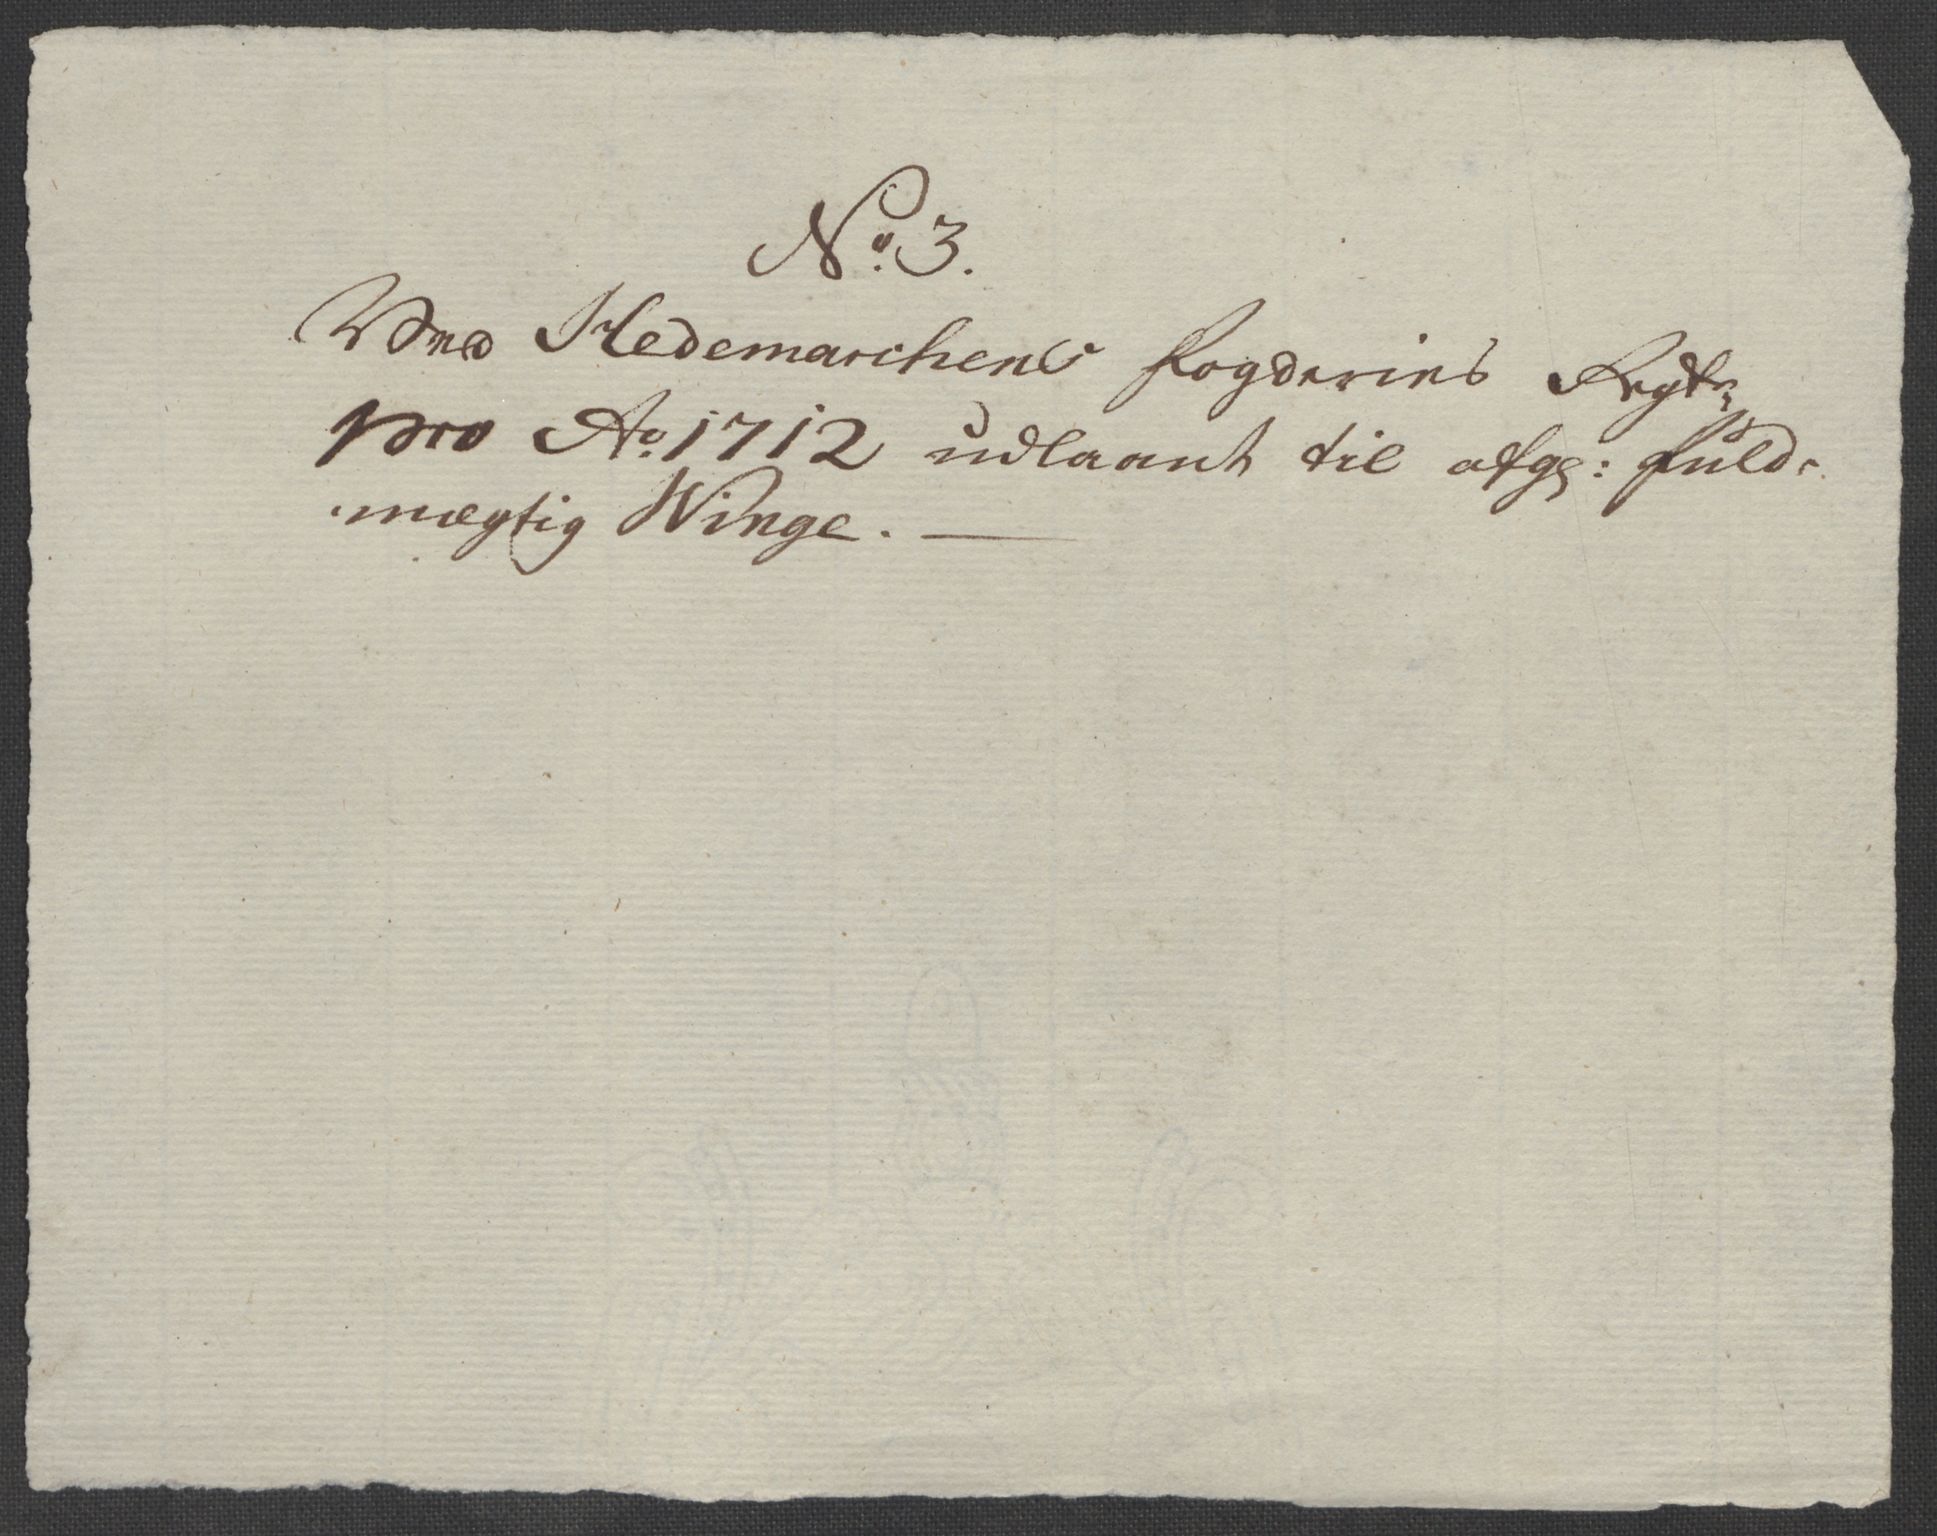 No. 3.
Ved Hedemarchens fogderies Regtr
pro Ao. 1712 udlaant til afg: fuld-
mægtig Winge. —